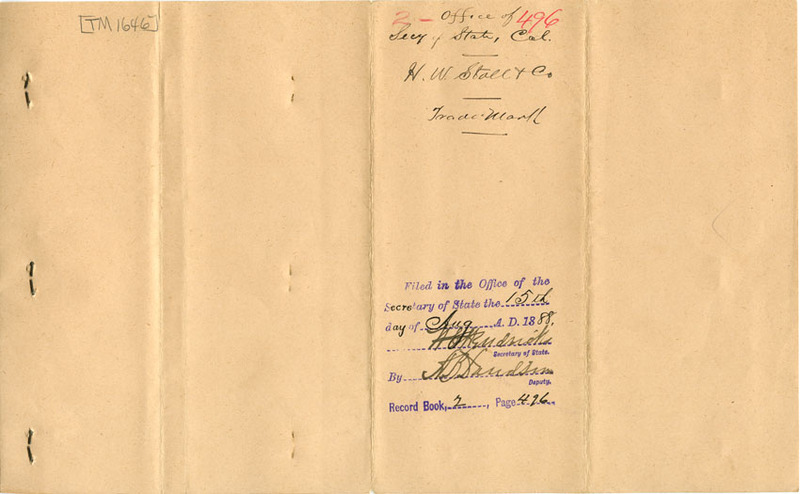 [TM 1646]
2 - Office of 496
Secy of State, Cal.
H. W. Stoll & Co
Trade-Mark
Filed in the Office of the
Secretary of State the 15th
day of Aug A. D. 1888.
Secretary of State.
By
Deputy.
Record Book, 2, Page 496.